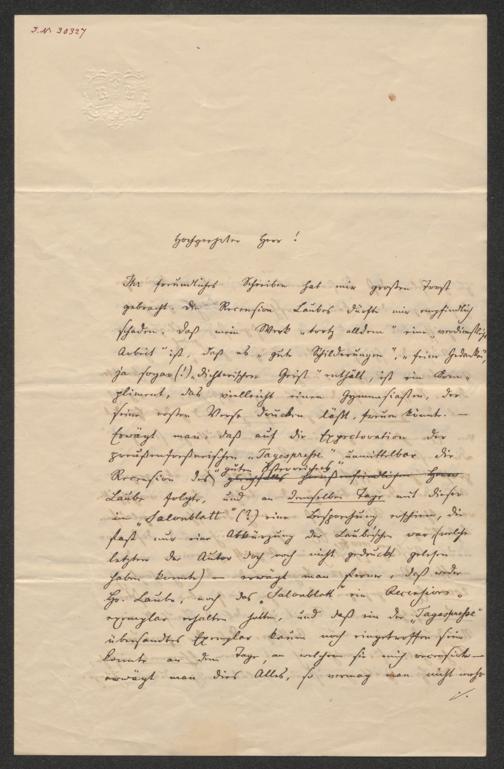 J.N. 30327
Hochgeehrter Herr!
Ihr freundliches Schreiben hat mir großen Trost
gebracht. Die Recension Laubes dürfte mir empfindlich
schaden. Daß mein Werk „trotz alldem“ eine „verdienstliche
Arbeit“ ist, daß es „gute Schilderungen“, „feine Gedanken“
ja sogar (!) „dichterischen Geist“ enthält, ist ein Kom-
pliment, das vielleicht einen Gymnasiasten, der
seine ersten Verse drucken läßt, freuen könnte. —
Erwägt man, daß auf die Expectoration der
„Tagespresse“ unmittelbar die
„guten Österreichers“
Recension des Herrn
Laube folgte, und an demselben Tage mit dieser
im „Salonblatt“ (?) eine Besprechung erschien, die
fast nur eine Abkürzung der Laubeschen war (welche
letztere der Autor doch noch nicht gedruckt gelesen
haben konnte) — erwägt man ferner, daß weder
Hr. Laube, noch das „Salonblatt“ ein Recensions-
exemplar erhalten hatten, und daß ein der „Tagespresse“
übersandtes Exemplar kaum noch eingetroffen sein
konnte an dem Tage, an welchem sie mich recensirte —
erwägt man dies Alles, so vermag man nicht mehr
./.